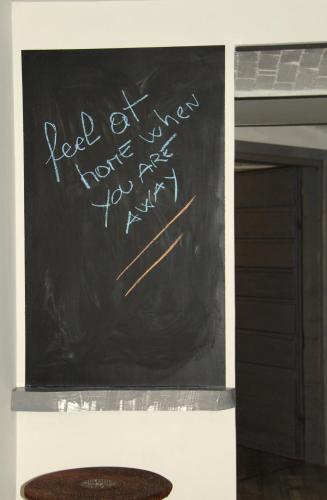 feel at
HOME wHen
YOU ARE
AWAY